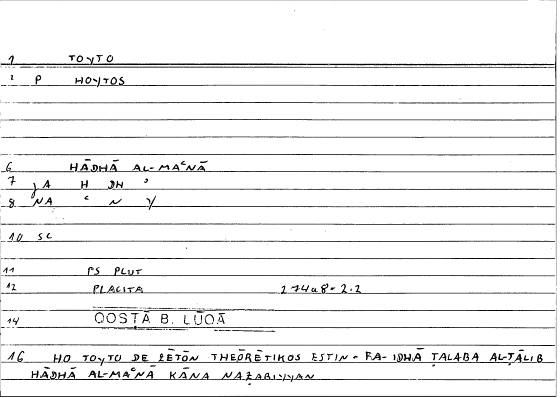 1 TOYTO
2 P HOYTOS
6 HĀDHĀ AL-MAᶜNĀ
7 JA H DH ʾ
8 NA ᶜ N Y
10 SC
11 PS PLUT
12 PLACITA 274a8-2.2
14 QOSṬĀ B. LŪQĀ
16 HO TOYTO DE ZĒTŌN THEŌRĒTIKOS ESTIN - FA-IDHĀ ṬALABA AL-ṬĀLIB
HĀDHĀ AL-MAᶜNĀ KĀNA NAẒARIYYAN